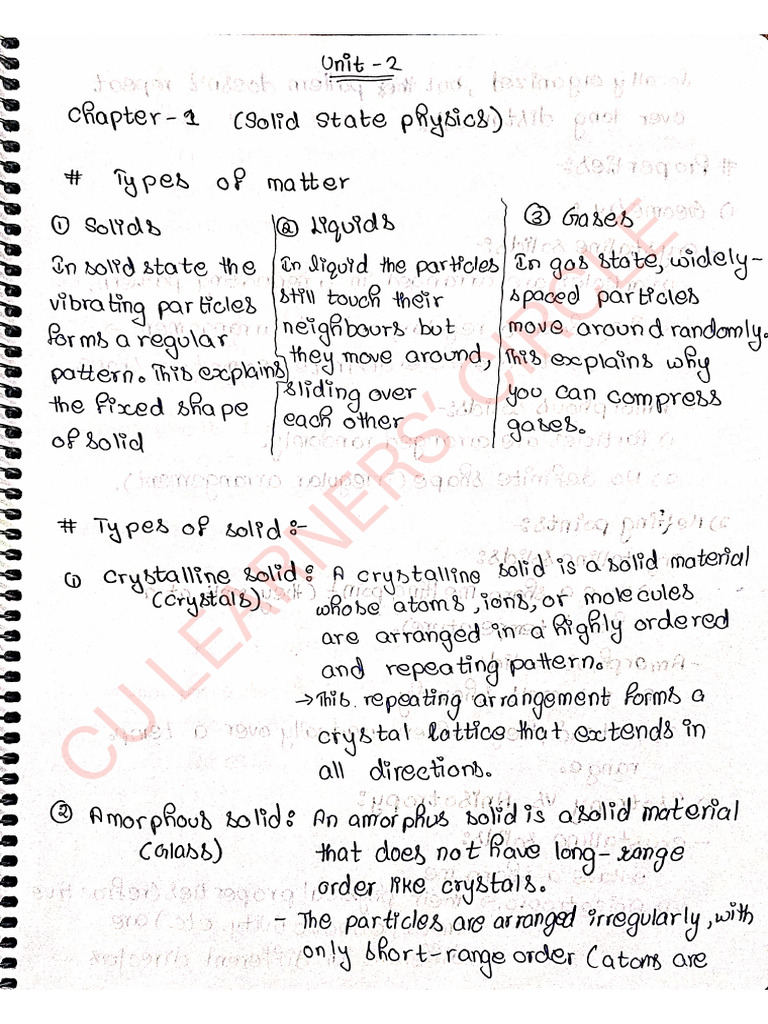 Unit - 2
Chapter - 1 (Solid State physics)
# Types of matter
① Solids
In solid state the
vibrating particles
forms a regular
pattern. This explains
the fixed shape
of solid
② Liquids
In liquid the particles
still touch their
neighbours but
they move around,
sliding over
each other
③ Gases
In gas state, widely-
spaced particles
move around randomly.
This explains why
you can compress
gases.
# Types of solid :-
① Crystalline solid : A crystalline solid is a solid material
(Crystals) whose atoms, ions, or molecules
are arranged in a highly ordered
and repeating pattern.
→ This repeating arrangement forms a
crystal lattice that extends in
all directions.
② Amorphous solid : An amorphus solid is a solid material
(Glass) that does not have long-range
order like crystals.
- The particles are arranged irregularly, with
only short-range order (atoms are
CU LEARNERS' CIRCLE